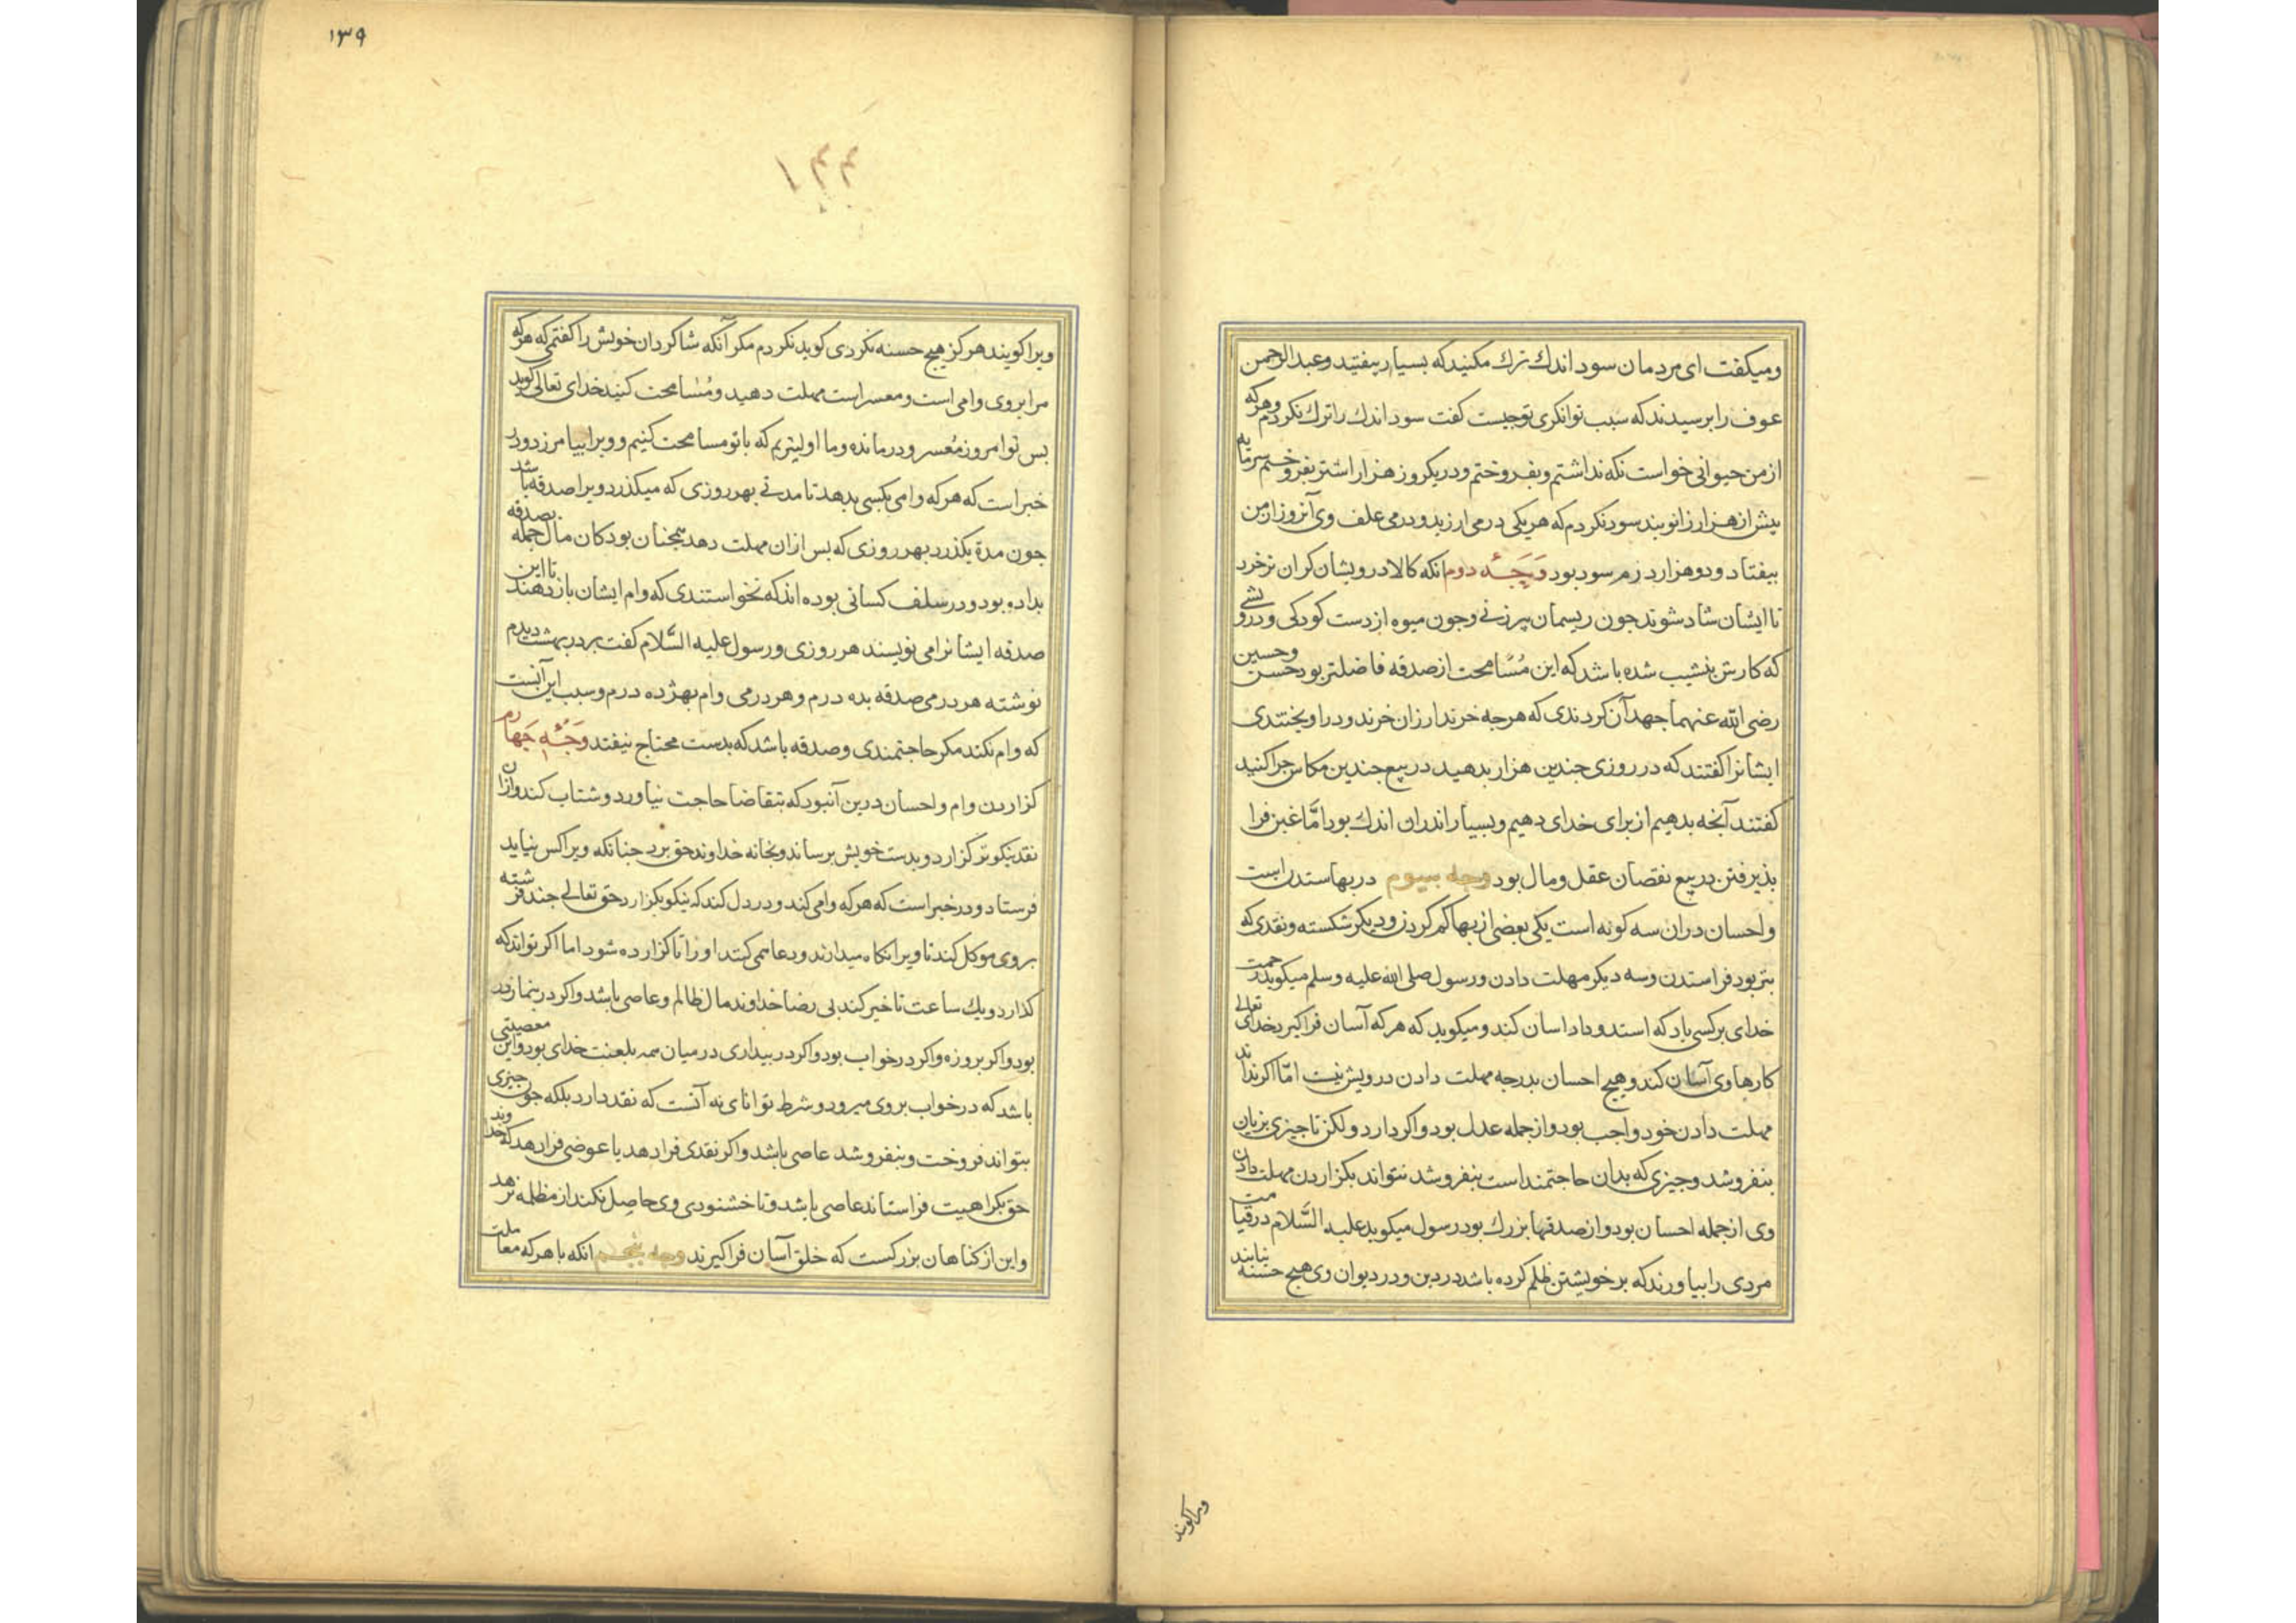 ومیکفت ای مردمان سود اندك ترك مکنید که بسیار بیفتید وعبدالرحمن
عوف را برسیدند که سبب توانکری تو جیست کفت سود اندك را ترك نکردم وهرکه
از من حیوانی خواست نکه نداشتم وبفروختم ودر یکروز هزار اشتر بفروختم سرمایه
بیش از هزار زانوبند سود نکردم که هریکی درمی ارزید ودرمی علف وی آنروز از من
بیفتاد ودو هزار درم سود بود وَجهُ دوم انکه کالا درویشان کران تر خرد
تا ایشان شاد شوند جون ریسمان پیرزنی وجون میوه از دست کودکی ودرویشی
که کارش بنشیب شده باشد که این مُسَامحت از صدقه فاضلتر بود حسن وحسین
رضی الله عنهما جهد آن کردندی که هرجه خرند ارزان خرند ودراویختندی
ایشانرا کفتند که در روزی جندین هزار بدهید در بیع جندین مکاس جرا کنید
کفتند آنجه بدهیم از برای خدای دهیم وبسیار اندران اندك بود امَّا غبن فرا
بذیرفتن در بیع نقصان عقل ومال بود وجه سیوم در بها ستدن است
واحسان دران سه کونه است یکی بعضی از بها کم کردن ودیکر شکسته ونقدی که
بتر بود فراستدن وسه دیکر مهلت دادن ورسول صلی الله علیه وسلم میکوید رحمت
خدای برکسی باد که استد وداد اسان کند ومیکوید که هرکه آسان فراکیرد خدای تعالی
کارها وی آسان کند وهیج احسان بدرجه مهلت دادن درویش نیست امّا اکر نداند
مهلت دادن خود واجب بود واز جمله عدل بود واکر دارد ولکن تا جیزی بزیان
بنفروشد وجیزی که بدان حاجتمند است بنفروشد نتواند بکزاردن مهلت دادن
وی از جمله احسان بود واز صدقها بزرك بود رسول میکوید علیه السَّلام در قیامت
مردی را بیاورند که بر خویشتن ظلم کرده باشد در دین ودر دیوان وی هیج حسنه نیابند
ویرا کویند
۱۳۹
۱۴۴
ویرا کویند هرکز هیج حسنه نکردی کوید نکردم مکر آنکه شاکردان خویش را کفتمی که هرکه
مرا بروی وامی است ومعسر است مهلت دهید ومُسَامحت کنید خدای تعالی کوید
بس تو امروز مُعسر ودرمانده وما اولیتریم که با تو مسامحت کنیم وویرا بیامرزد ودر
خبر است که هرکه وامی بکسی بدهد تا مدتی بهر روزی که میکذرد ویرا صدقه باشد
جون مدة بکذرد بهر روزی که بس ازان مهلت دهد همجنان بود کان مال جمله بصدقه
بداده بود ودر سلف کسانی بوده اند که نخواستندی که وام ایشان باز دهند تا این
صدقه ایشانرا می نویسند هر روزی ورسول علیه السَّلام کفت بر در بهشت دیدم
نوشته هر درمی صدقه بده درم وهر درمی وام بهژده درم وسبب این آنست
که وام نکند مکر حاجتمندی وصدقه باشد که بدست محتاج نیفتد وَجهُ جَهارم
کزاردن وام واحسان درین آنبود که بتقاضا حاجت نیاورد وشتاب کند وازان
نقد نیکوتر کزارد وبدست خویش برساند وبخانه خداوند حق برد جنانکه ویرا کس نباید
فرستاد ودر خبر است که هرکه وامی کند ودر دل کند که نیکو بکزارد حق تعالی جند فرشته
بروی موکل کند تا ویرا نکاه میدارند ودعا همی کنند اورا تا کزارده شود اما اکر تواند که
کذارد ویك ساعت تاخیر کند بی رضا خداوند مال ظالم وعاصی باشد واکر در نماز در
بود واکر بروزه واکر در خواب بود واکر در بیداری در میان همه بلعنت خدای بود واین معصیتی
باشد که در خواب بروی میرود وشرط توانای نه آنست که نقد دارد بلکه جون جیزی
بتواند فروخت وبنفروشد عاصی باشد واکر نقدی فرا دهد یا عوضی فرا دهد که خداوند
حق بکراهیت فراستاند عاصی باشد وتا خشنودی وی حاصِل نکند از مظلمه نرهد
واین از کناهان بزرکست که خلق آسان فراکیرند وجه پنجم انکه با هرکه معاملت